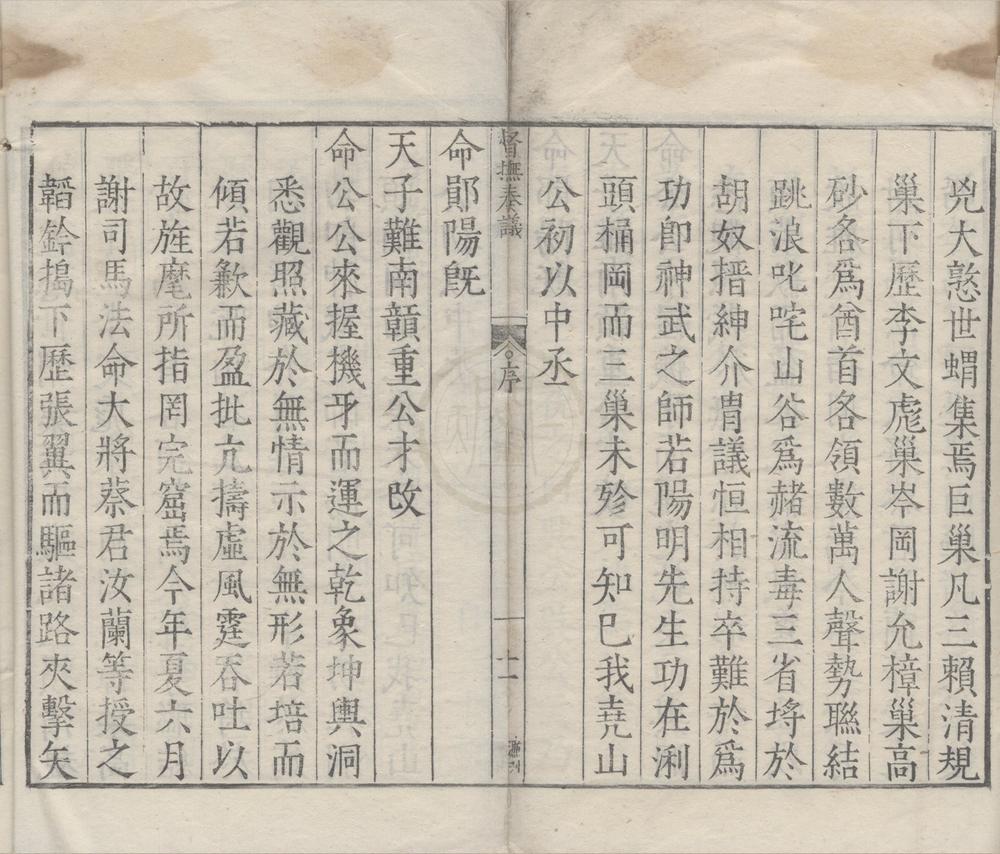 兇大憝世蝟集焉巨巢凡三賴清規
巢下歷李文彪巢岑岡謝允樟巢高
砂各爲酋首各領數萬人聲勢聯結
跳浪叱咤山谷爲赭流毒三省埓於
胡奴搢紳介胄議恒相持卒難於爲
功卽神武之師若陽明先生功在浰
頭桶岡而三巢未殄可知巳我堯山
公初以中丞
督撫奏議
序
十一
命鄖陽旣
天子難南贛重公才改
命公公來握機牙而運之乾象坤輿洞
悉觀照藏於無情示於無形若培而
傾若歉而盈批亢擣虛風霆吞吐以
故旌麾所指罔完窟焉今年夏六月
謝司馬法命大將蔡君汝蘭等授之
韜鈐搗下歷張翼而驅諸路夾擊矢